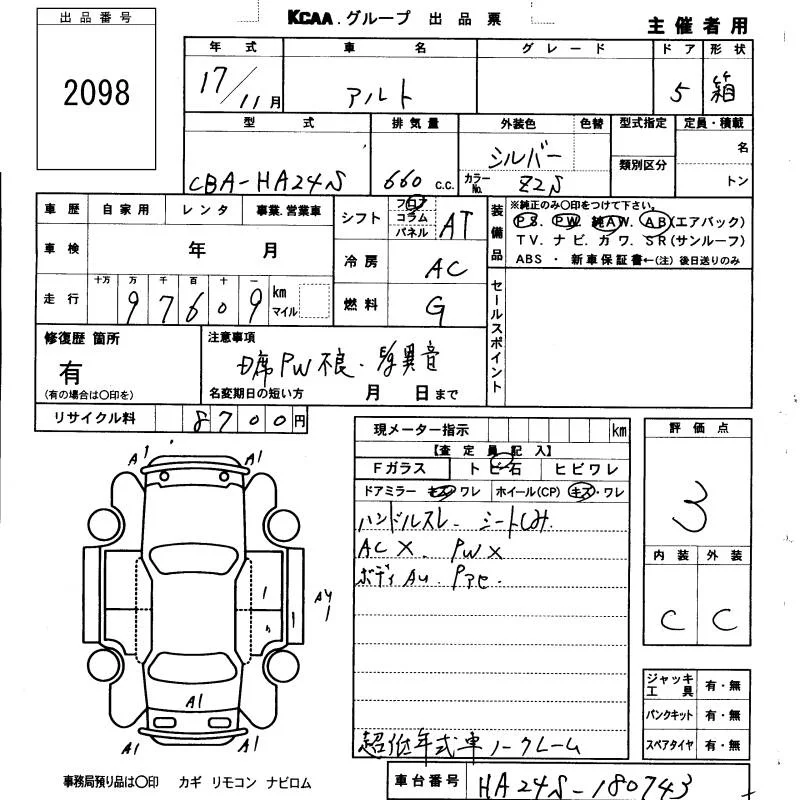 出品番号
2098
KCAA.グループ 出品票
主催者用
年式 車名 グレード ドア 形状
17/11月 アルト 5 箱
型式 排気量 外装色 色替 型式指定 定員・積載
CBA-HA24S 660 c.c. シルバー 名
カラーNo. Z2S 類別区分 トン
車歴 自家用 レンタ 事業.営業車
車検 年 月
走行 十万 万 千 百 十 一 km マイル
97609
シフト フロア コラム パネル AT
冷房 AC
燃料 G
装備品
※純正のみ○印をつけて下さい。
PS. PW. 純AW. AB(エアバック)
TV.ナビ.カワ.SR(サンルーフ)
ABS ・ 新車保証書←(注)後日送りのみ
セールスポイント
修復歴 箇所
有
(有の場合は○印を)
注意事項
PW不良. 異音
名変期日の短い方 月 日まで
リサイクル料 8700円
現メーター指示 km
【査定員記入】
Fガラス トビ石 ヒビワレ
ドアミラー キズ・ワレ ホイール(CP) キズ・ワレ
ハンドルスレ. シートしみ.
AC X. PW X
ボディ AU. Pアセ.
超低年式車ノークレーム
評価点
3
内装 外装
C C
ジャッキ工具 有・無
パンクキット 有・無
スペアタイヤ 有・無
A1 A1
A4
1
1
1
A1
A1 A1
事務局預り品は○印 カギ リモコン ナビロム
車台番号 HA24S-180743